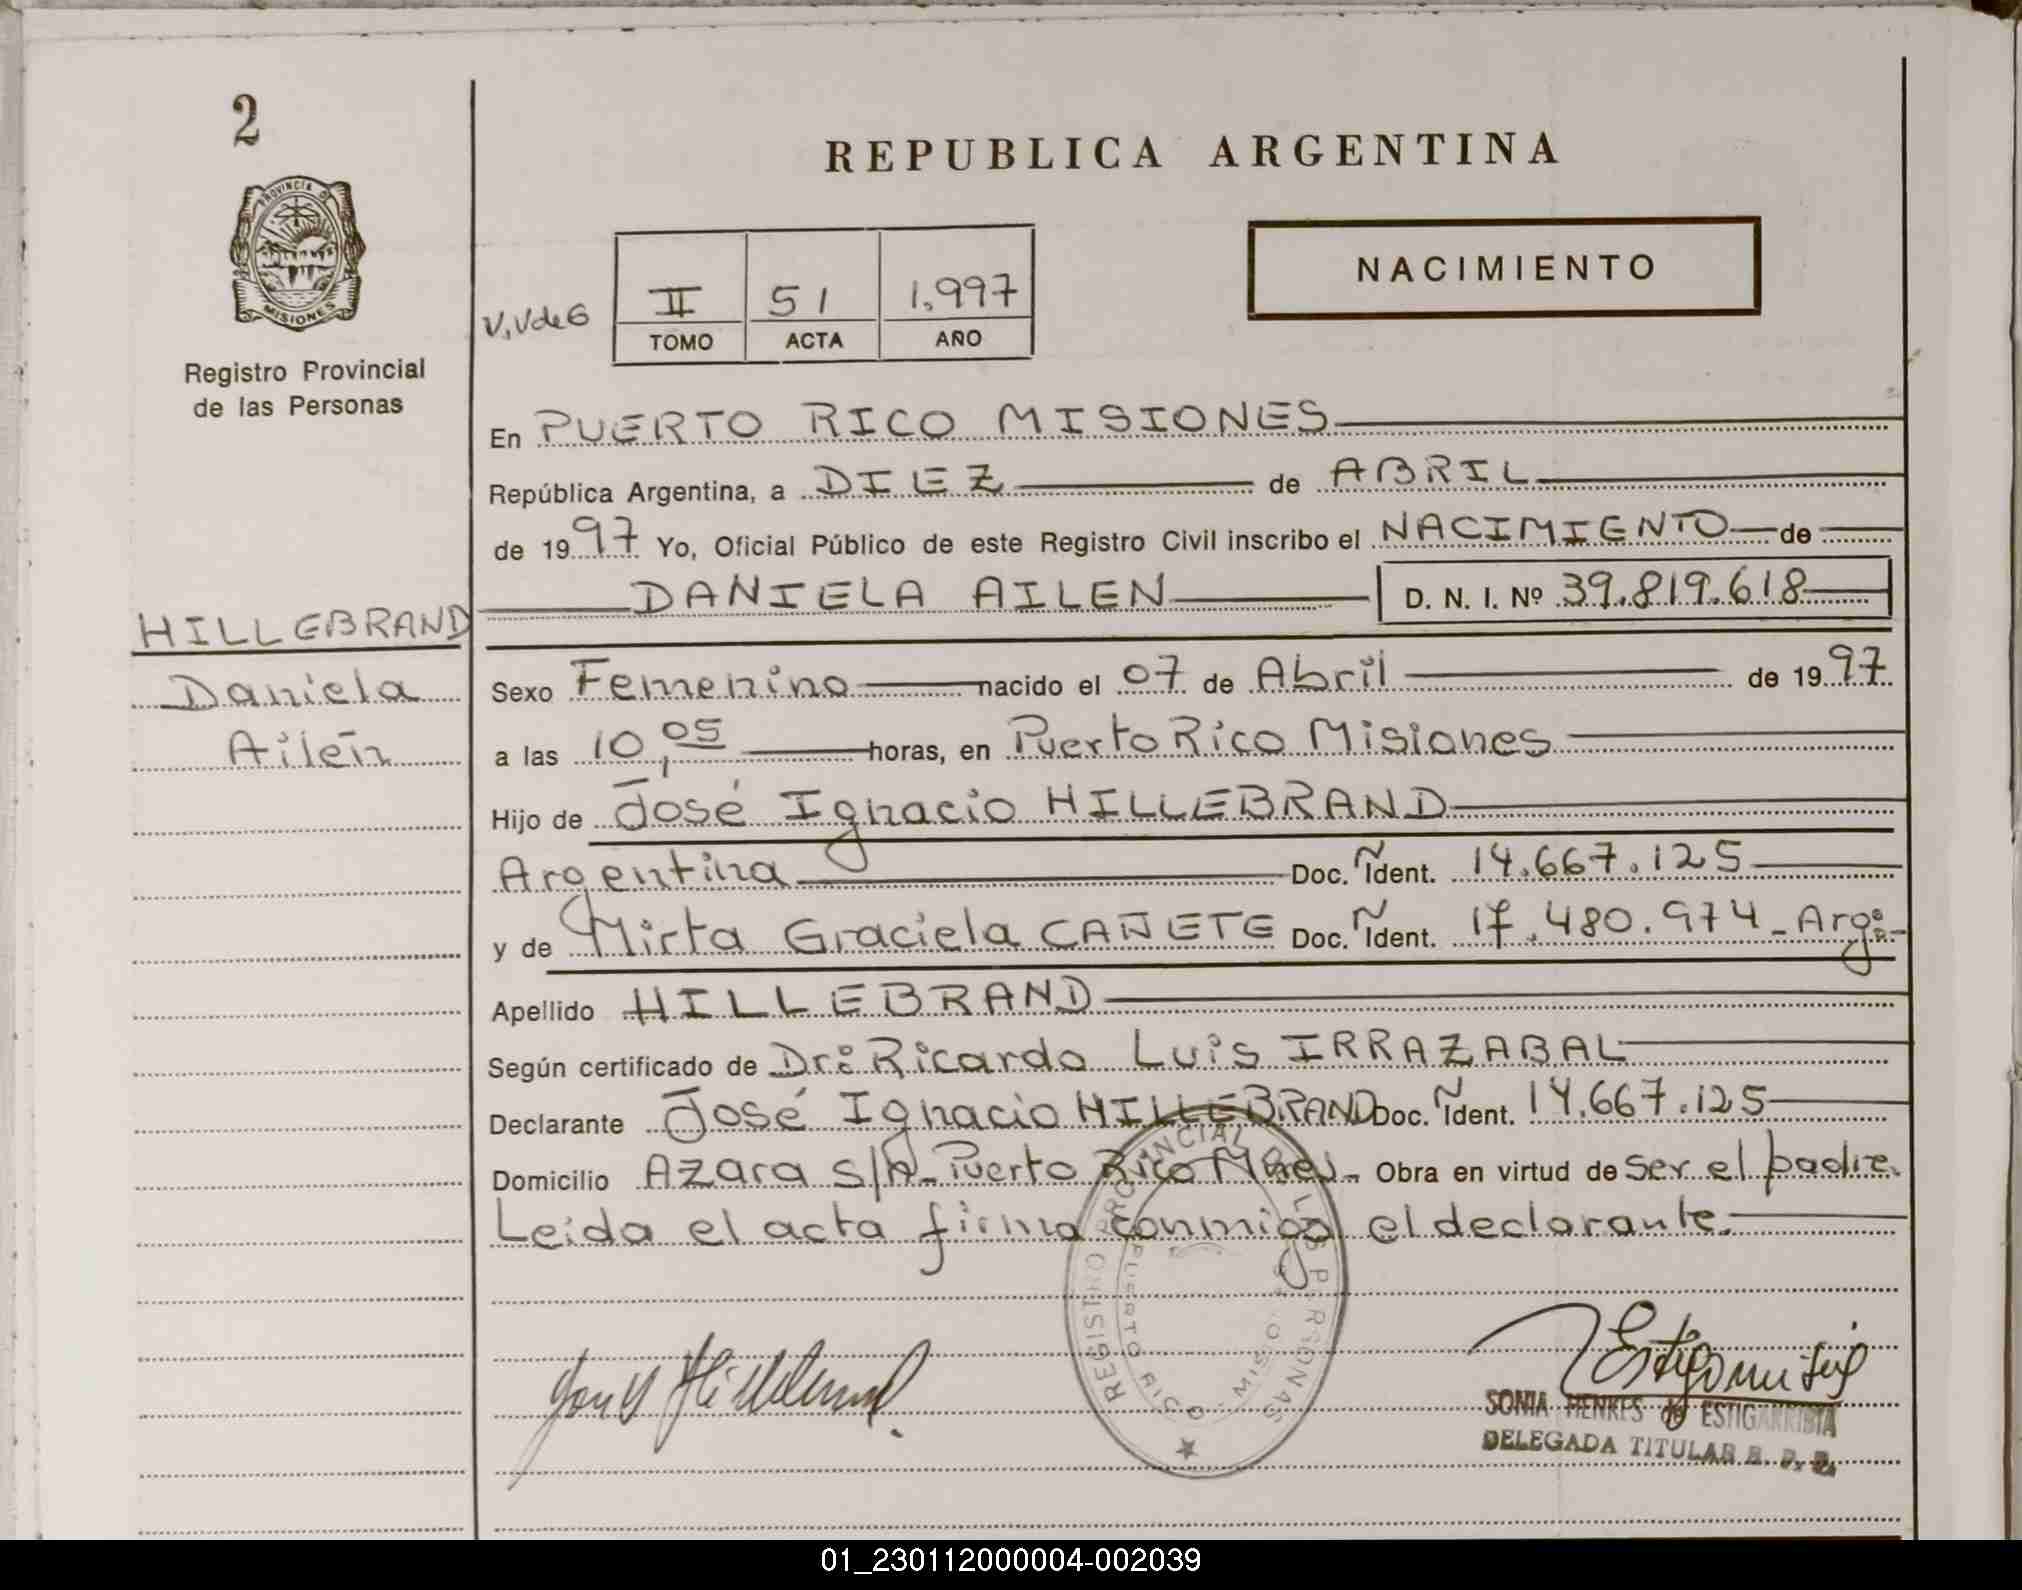 2
PROVINCIA DE
MISIONES
Registro Provincial
de las Personas
HILLEBRAND
Daniela
Ailén
REPUBLICA ARGENTINA
V,Vde6
II 51 1.997
TOMO ACTA AÑO
NACIMIENTO
En PUERTO RICO MISIONES
República Argentina, a DIEZ de ABRIL
de 1997 Yo, Oficial Público de este Registro Civil inscribo el NACIMIENTO de
DANIELA AILEN D. N. I. Nº 39.819.618
Sexo Femenino nacido el 07 de Abril de 1997
a las 10,05 horas, en Puerto Rico Misiones
Hijo de José Ignacio HILLEBRAND
Argentina Doc. Ident. 14.667.125
y de Mirta Graciela CAÑETE Doc. Ident. 17.480.974 - Arg.
Apellido HILLEBRAND
Según certificado de Dr: Ricardo Luis IRRAZABAL
Declarante José Ignacio HILLEBRAND Doc. Ident. 14.667.125
Domicilio Azara s/n - Puerto Rico Mnes - Obra en virtud de ser el padre.
Leida el acta firma conmigo el declarante.
REGISTRO PROVINCIAL DE LAS PERSONAS
PUERTO RICO - MISIONES
SONIA HENKES de ESTIGARRIBIA
DELEGADA TITULAR R. P. P.
01_230112000004-002039